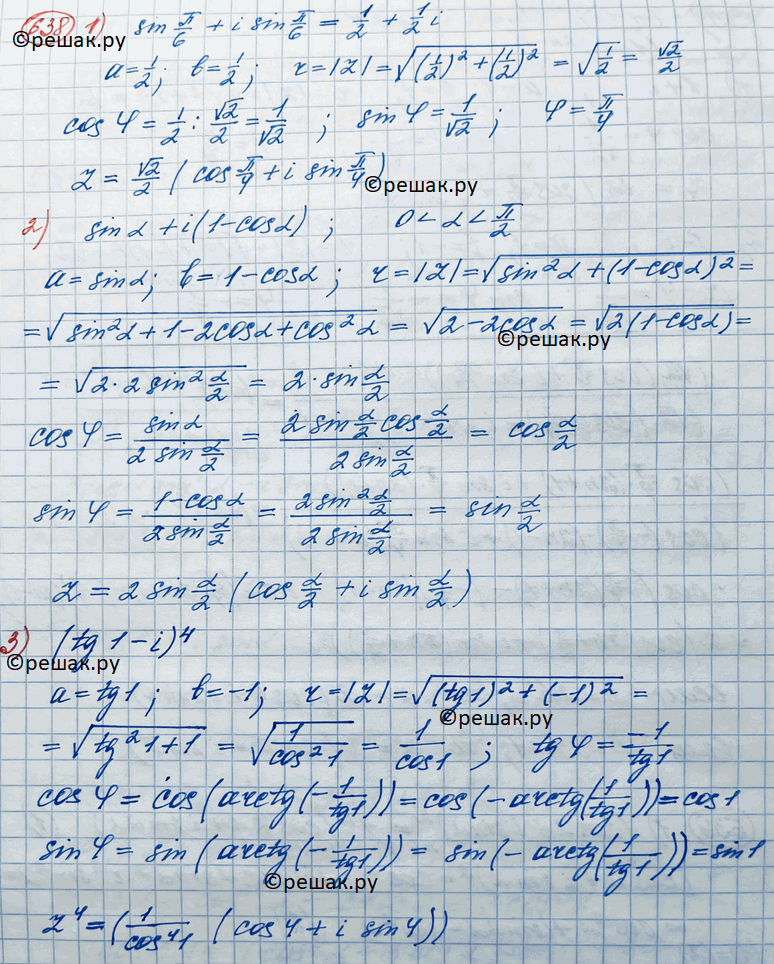 638) 1) sin π/6 + i sin π/6 = 1/2 + 1/2 i
©решак.ру
a = 1/2; b = 1/2; r = |Z| = √((1/2)² + (1/2)²) = √(1/2) = √2/2
cos φ = 1/2 : √2/2 = 1/√2 ; sin φ = 1/√2 ; φ = π/4
Z = √2/2 (cos π/4 + i sin π/4)
©решак.ру
2) sin α + i(1-cos α) ; 0 < α < π/2
a = sin α; b = 1 - cos α ; r = |Z| = √(sin²α + (1-cos α)²) =
= √(sin²α + 1 - 2cos α + cos²α) = √(2 - 2cos α) = √(2(1-cos α)) =
©решак.ру
= √(2·2 sin² α/2) = 2·sin α/2
cos φ = sin α / (2 sin α/2) = (2 sin α/2 cos α/2) / (2 sin α/2) = cos α/2
sin φ = (1-cos α) / (2 sin α/2) = (2 sin² α/2) / (2 sin α/2) = sin α/2
Z = 2 sin α/2 (cos α/2 + i sin α/2)
3) (tg 1 - i)⁴
©решак.ру
a = tg1 ; b = -1; r = |Z| = √((tg1)² + (-1)²) =
©решак.ру
= √(tg²1 + 1) = √(1/cos²1) = 1/cos1 ; tg φ = -1/tg1
cos φ = cos(arctg(-1/tg1)) = cos(-arctg(1/tg1)) = cos1
sin φ = sin(arctg(-1/tg1)) = sin(-arctg(1/tg1)) = sin1
©решак.ру
z⁴ = (1/cos⁴1 (cos4 + i sin4))